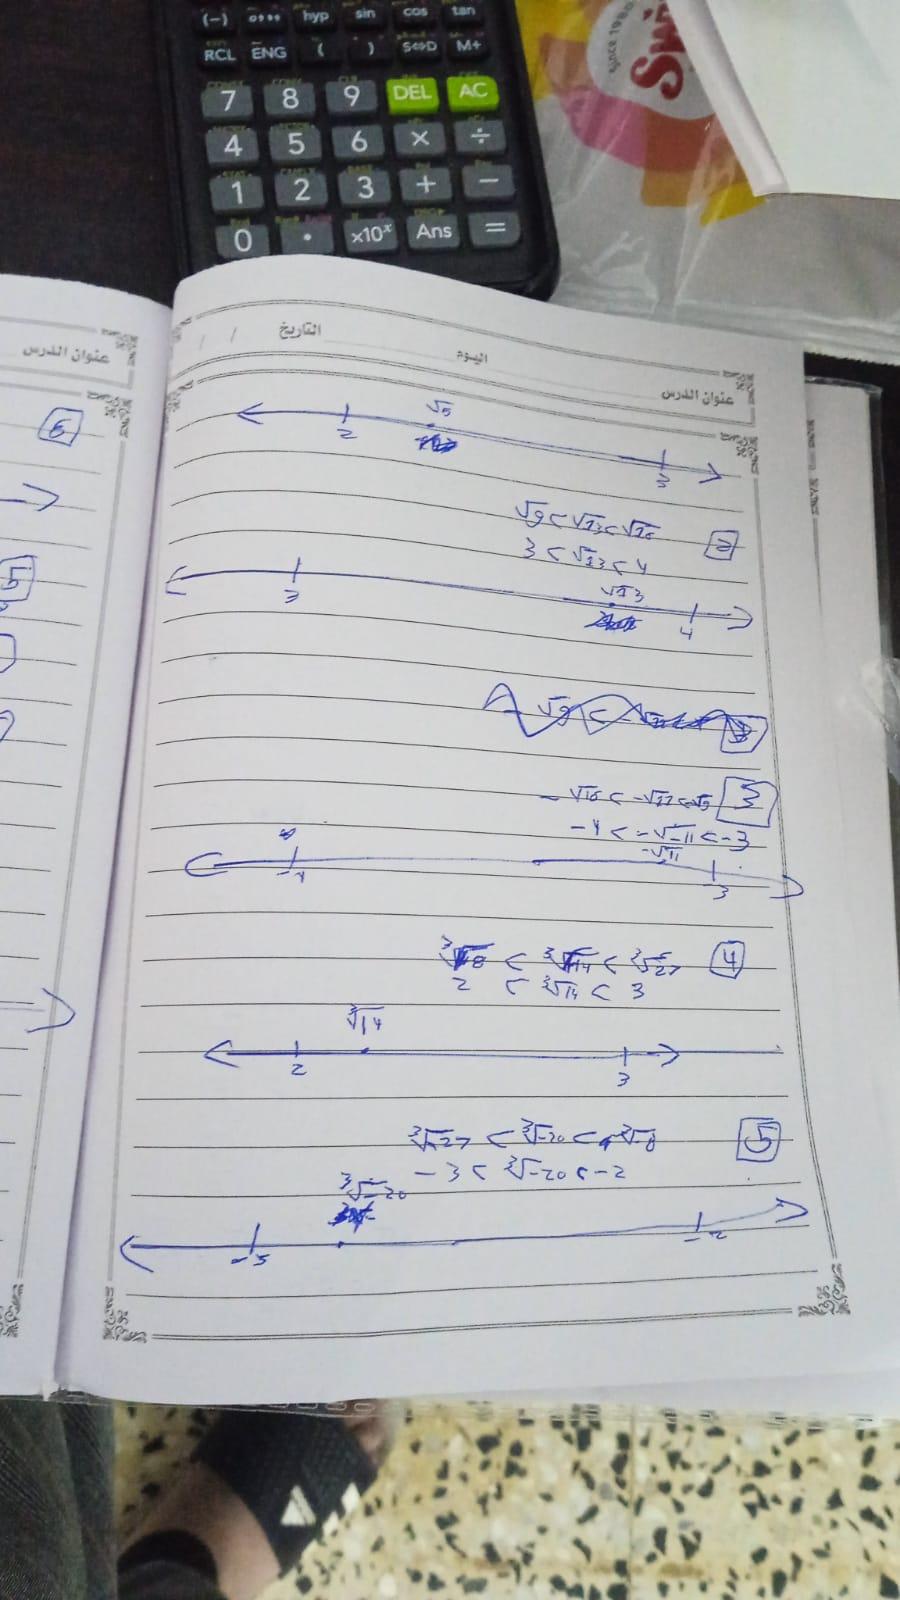 (-) °,,, hyp sin cos tan
RCL ENG ( ) S⇔D M+
7 8 9 DEL AC
4 5 6 × ÷
1 2 3 + −
0 • ×10ˣ Ans =
since 1980
عنوان الدرس
6
5
اليوم
التاريخ / /
عنوان الدرس
√5
2 3
2
√9 < √13 < √16
3 < √13 < 4
√13
3 4
3
-√16 < -√11 < √9
-4 < -√-11 < -3
-√11
-4 -3
4
∛8 < ∛14 < ∛27
2 < ∛14 < 3
∛14
2 3
5
∛-27 < ∛-20 < ∛-8
-3 < ∛-20 < -2
∛-20
-3 -2